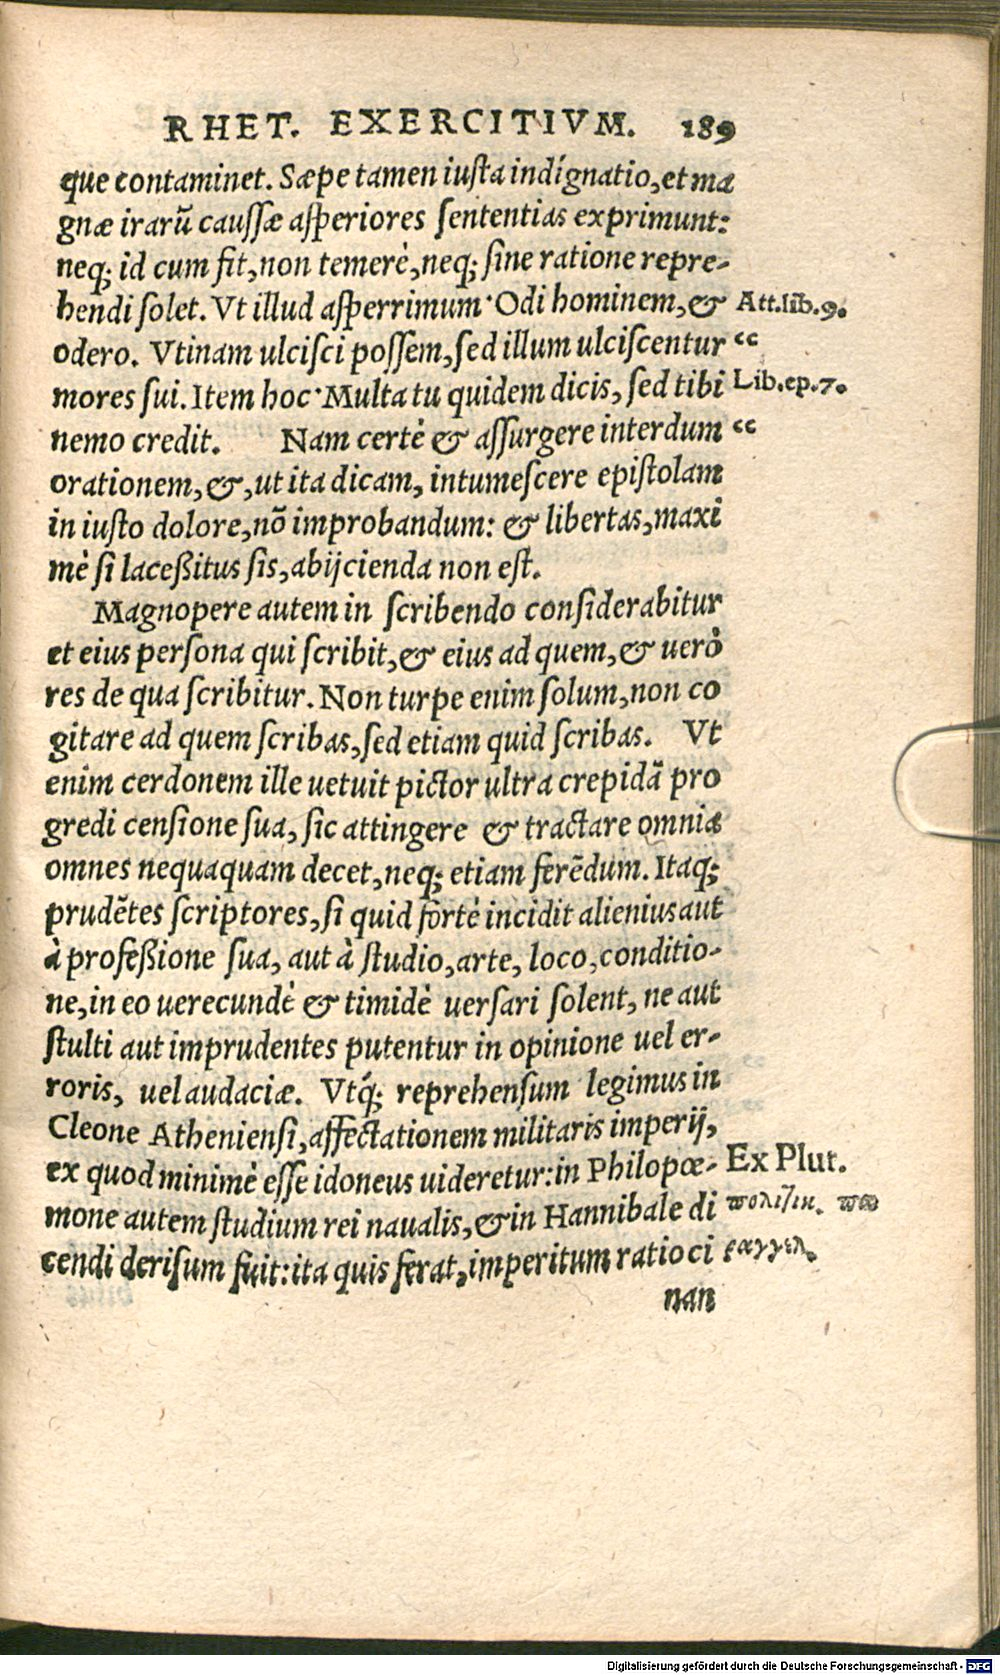 RHET. EXERCITIVM. 189
que contaminet. Sæpe tamen iusta indígnatio, et ma
gnæ irarũ caussæ asperiores sententias exprimunt:
neq; id cum fit, non temerè, neq; sine ratione repre-
hendi solet. Vt illud asperrimum· Odi hominem, & Att.lib.9.
odero. Vtinam ulcisci possem, sed illum ulciscentur “
mores sui. Item hoc· Multa tu quidem dicis, sed tibi Lib.ep.7.
nemo credit. Nam certè & assurgere interdum “
orationem, &, ut ita dicam, intumescere epistolam
in iusto dolore, nõ improbandum: & libertas, maxi
mè si laceßitus sis, abijcienda non est.
Magnopere autem in scribendo considerabitur
et eius persona qui scribit, & eius ad quem, & uerò
res de qua scribitur. Non turpe enim solum, non co
gitare ad quem scribas, sed etiam quid scribas. Vt
enim cerdonem ille uetuit pictor ultra crepidã pro
gredi censione sua, sic attingere & tractare omnia
omnes nequaquam decet, neq; etiam ferẽdum. Itaq;
prudẽtes scriptores, si quid fortè incidit alienius aut
à profeßione sua, aut à studio, arte, loco, conditio-
ne, in eo uerecundè & timidè uersari solent, ne aut
stulti aut imprudentes putentur in opinione uel er-
roris, uel audaciæ. Vtq́; reprehensum legimus in
Cleone Atheniensi, affectationem militaris imperij,
ex quod minimè esse idoneus uideretur: in Philopœ- Ex Plut.
mone autem studium rei naualis, & in Hannibale di πολιτικ. πα
cendi derisum fuit: ita quis ferat, imperitum ratioci ραγγελ.
nan
Digitalisierung gefördert durch die Deutsche Forschungsgemeinschaft - DFG